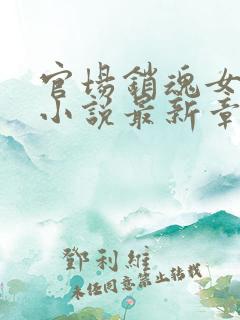 官場鎖魂女
小說最新章
鄧利維
未經同意禁止轉載